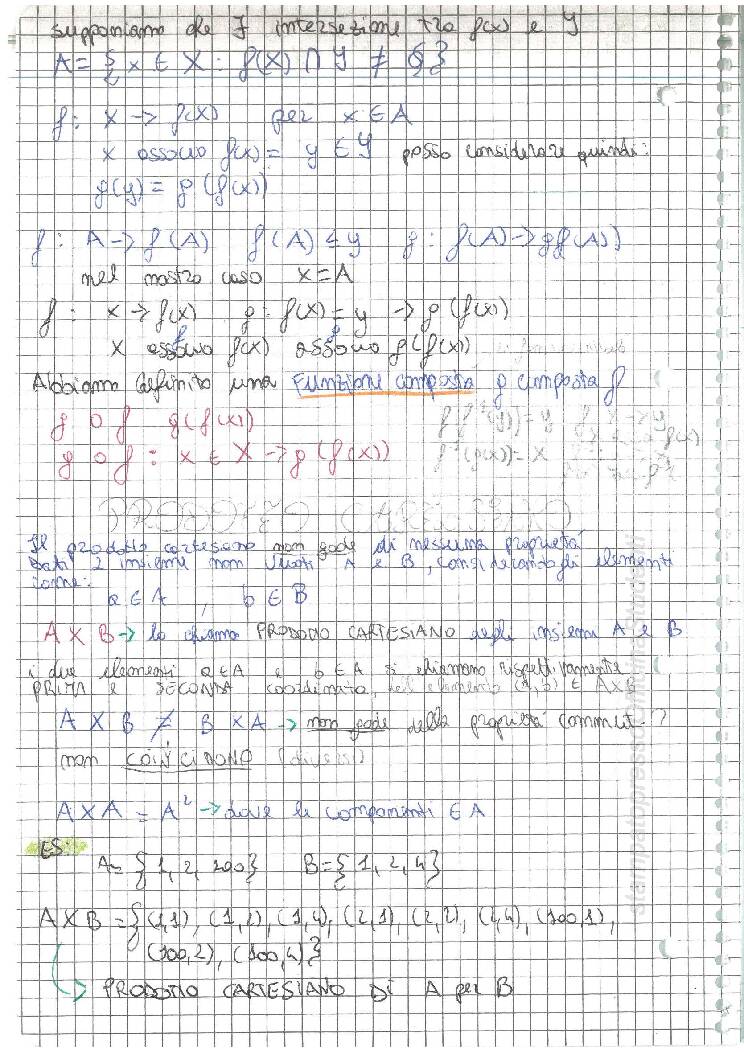 supponiamo che ∃ intersezione tra f(x) e Y
A = { x ∈ X : f(X) ∩ Y ≠ ∅}
f: X -> f(X) per x ∈ A
x associo f(x) = y ∈ Y posso considerare quindi:
g(y) = g(f(x))
f: A -> f(A) f(A) ⊆ y g: f(A) -> g f(A))
nel nostro caso x = A
f: x -> f(x) g: f(x) = y -> g(f(x))
x associo f(x) associo g(f(x))
Abbiamo definito una Funzione composta g composta f
g o f g(f(x))
g o f : x ∈ X -> g(f(x))
PRODOTTO CARTESIANO
Il prodotto cartesiano non gode di nessuna proprietà
Dati 2 insiemi non vuoti A e B, considerando gli elementi
come:
a ∈ A , b ∈ B
A X B -> lo chiamo PRODOTTO CARTESIANO degli insiemi A e B
i due elementi a ∈ A e b ∈ A si chiamano rispettivamente
PRIMA e SECONDA coordinata, dell'elemento (a,b) ∈ AxB
A X B ≠ B x A -> non gode della proprietà commut.
non COINCIDONO (diversi)
A X A = A² -> dove le componenti ∈ A
ES:
A = {1, 2, 100} B = {1, 2, 4}
A X B = {(1,1), (1,2), (1,4), (2,1), (2,2), (2,4), (100,1),
(100,2), (100,4)}
PRODOTTO CARTESIANO DI A per B